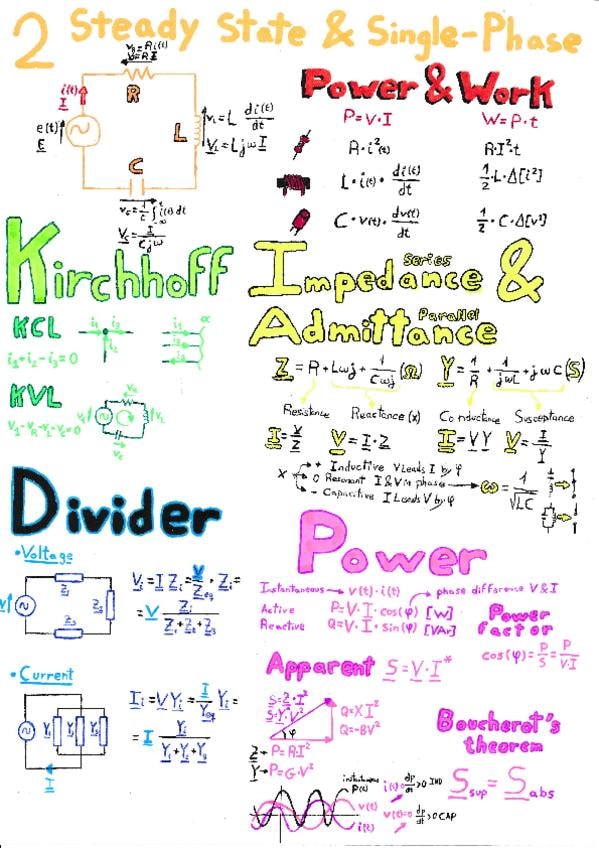 2 Steady State & Single-Phase
v_R=Ri(t)
V=RI
i(t)
I
R
e(t)
E
L
v_L=L di(t)/dt
V_L=LjωI
C
v_c=1/C ∫ i(t)dt
V_c=I/Cjω
Power & Work
P=V·I W=P·t
R·i²(t) R·I²·t
L·i(t)·di(t)/dt 1/2·L·Δ[i²]
C·v(t)·dv(t)/dt 1/2·C·Δ[v²]
Kirchhoff
KCL
i1 i2
i1+i2-i3=0
KVL
V1-VR-VL-VC=0
Impedance Series &
Admittance Parallel
Z=R+Lωj+1/Cωj (Ω) Y=1/R+1/jωL+jωC (S)
Resistance Reactance (x) Conductance Susceptance
I=V/Z V=I·Z I=VY V=I/Y
X + Inductive V Leads I by φ
0 Resonant I & V in phase
- Capacitive I Leads V by φ
ω=1/√LC
Divider
•Voltage
V
Z1
Z2
Z3
Vi=I Zi=V/Zeq·Zi=
=V Zi/Z1+Z2+Z3
•Current
Y1 Y2 Y3
I
Ii=VYi=I/Yeq Yi=
=I Yi/Y1+Y2+Y3
Power
Instantaneous v(t)·i(t) phase difference V&I
Active P=V·I·cos(φ) [W]
Reactive Q=V·I·sin(φ) [VAr]
Power factor
cos(φ)=P/S=P/V·I
Apparent S=V·I*
S=Z·I²
S=Y*·V²
φ
Q=XI²
Q=-BV²
Z→P=R·I²
Y→P=G·V²
instantaneous P(t)
v(t)
i(t)
i(t)=0 dp/dt>0 IND
v(t)=0 dp/dt>0 CAP
Boucherot's
theorem
S sup = S abs